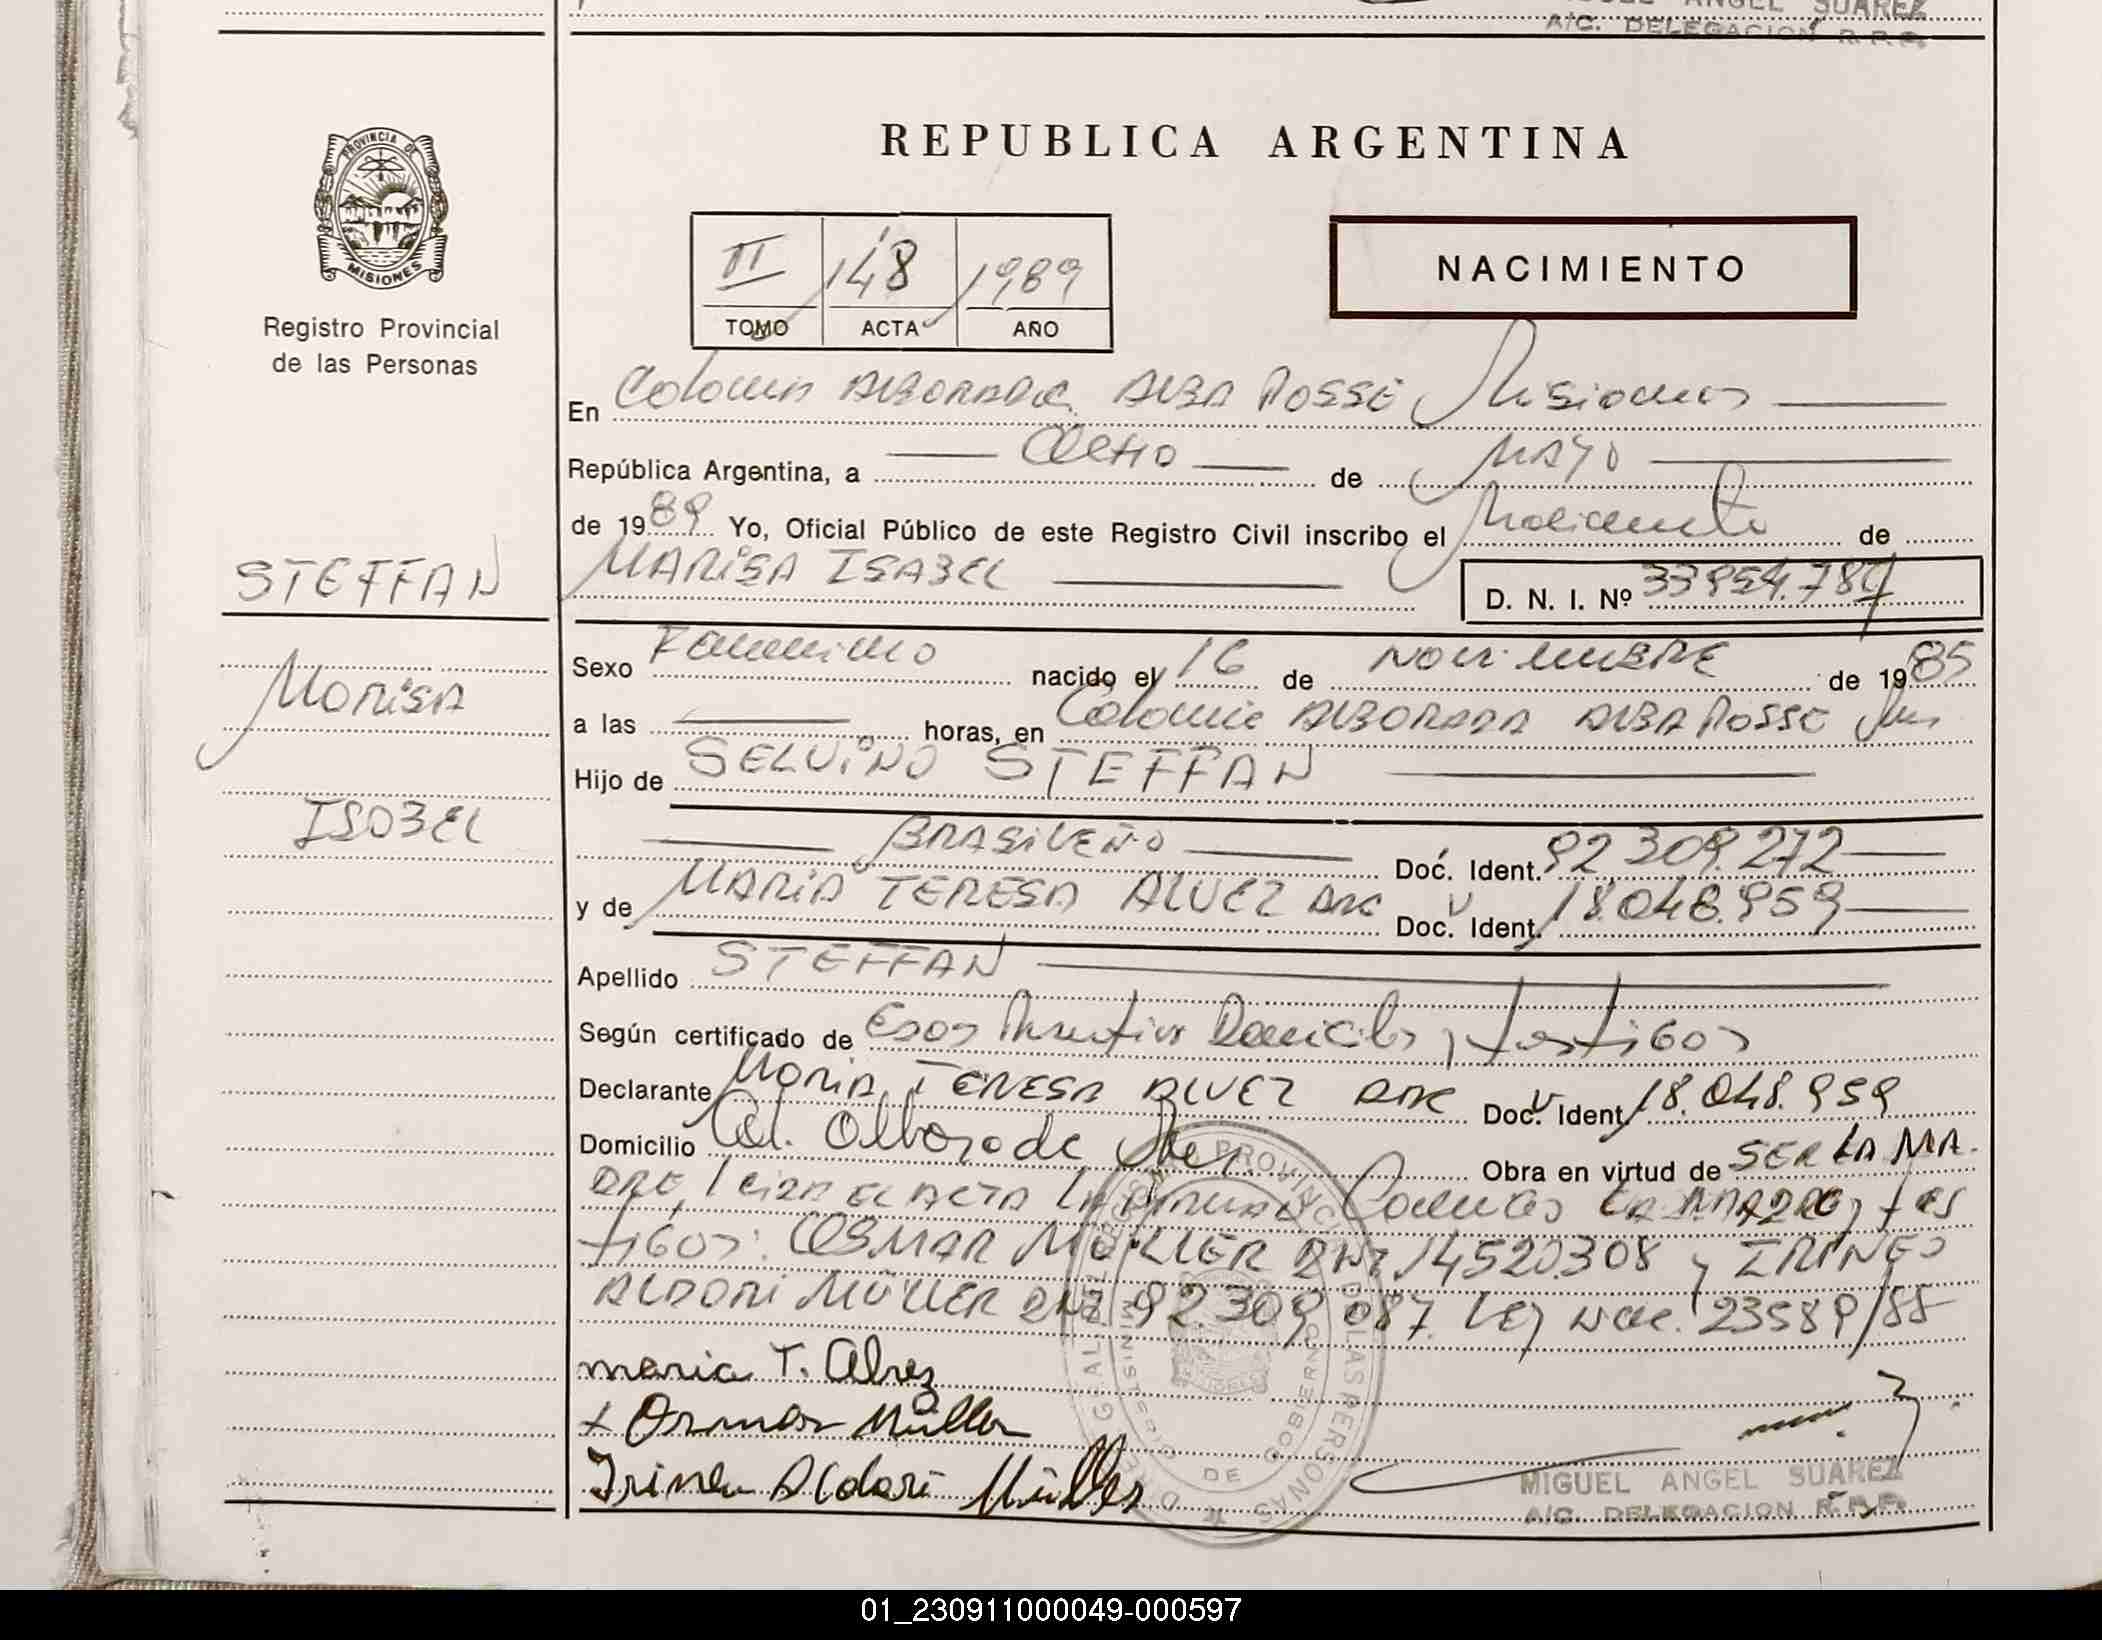 MIGUEL ANGEL SUAREZ
A/C. DELEGACION R.P.P.
PROVINCIA DE
MISIONES
Registro Provincial
de las Personas
REPUBLICA ARGENTINA
II 148 1989
TOMO ACTA AÑO
NACIMIENTO
En Colonia ALBORADA ALBA POSSE Misiones
República Argentina, a OCHO de MAYO
de 1989 Yo, Oficial Público de este Registro Civil inscribo el Nacimiento de
STEFFAN
MARISA ISABEL
D. N. I. Nº 33954.787
Sexo Femenino nacido el 16 de NOVIEMBRE de 1985
Marisa
a las horas, en Colonia ALBORADA ALBA POSSE Mnes
Hijo de SELVINO STEFFAN
ISABEL
BRASILEÑO Doc. Ident. 92.309.272
y de MARIA TERESA ALVEZ ARG Doc. Ident. 18.048.959
Apellido STEFFAN
Según certificado de Domicilio y testigos
Declarante MARIA TERESA ALVEZ ARG Doc. Ident. 18.048.959
Domicilio Col. Alborada Obra en virtud de SER LA MA.
DRE, EL ACTA LA MADRE y tes
tigos: OSMAR MÜLLER DNI 14520.308 y IRINEO
ALDORI MÜLLER DNI 92.309.087. Ley Nac. 23589/88
maria T. Alvez
+ Osmar Müller
Irineu Aldori Müller
MIGUEL ANGEL SUAREZ
A/C. DELEGACION R.P.P.
01_230911000049-000597